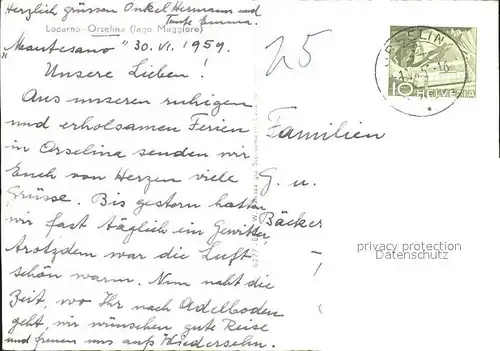 Herzlich grüssen Onkel Hermann und
Tante Emma.
Locarno-Orselina (lago Maggiore)
"Montesano" 30. VI. 1959.
Unsere Lieben!
Aus unseren ruhigen
und erholsamen Ferien
in Orselina senden wir
Euch von Herzen viele
Grüsse. Bis gestern hatten
wir fast täglich ein Gewitter,
trotzdem war die Luft
schön warm. Nun naht die
Zeit, wo Ihr nach Adelboden
geht, wir wünschen gute Reise
und freuen uns aufs Wiedersehn.
25
ORSELINA
10 HELVETIA
Familien
G. u.
Bäcker
privacy protection
Datenschutz